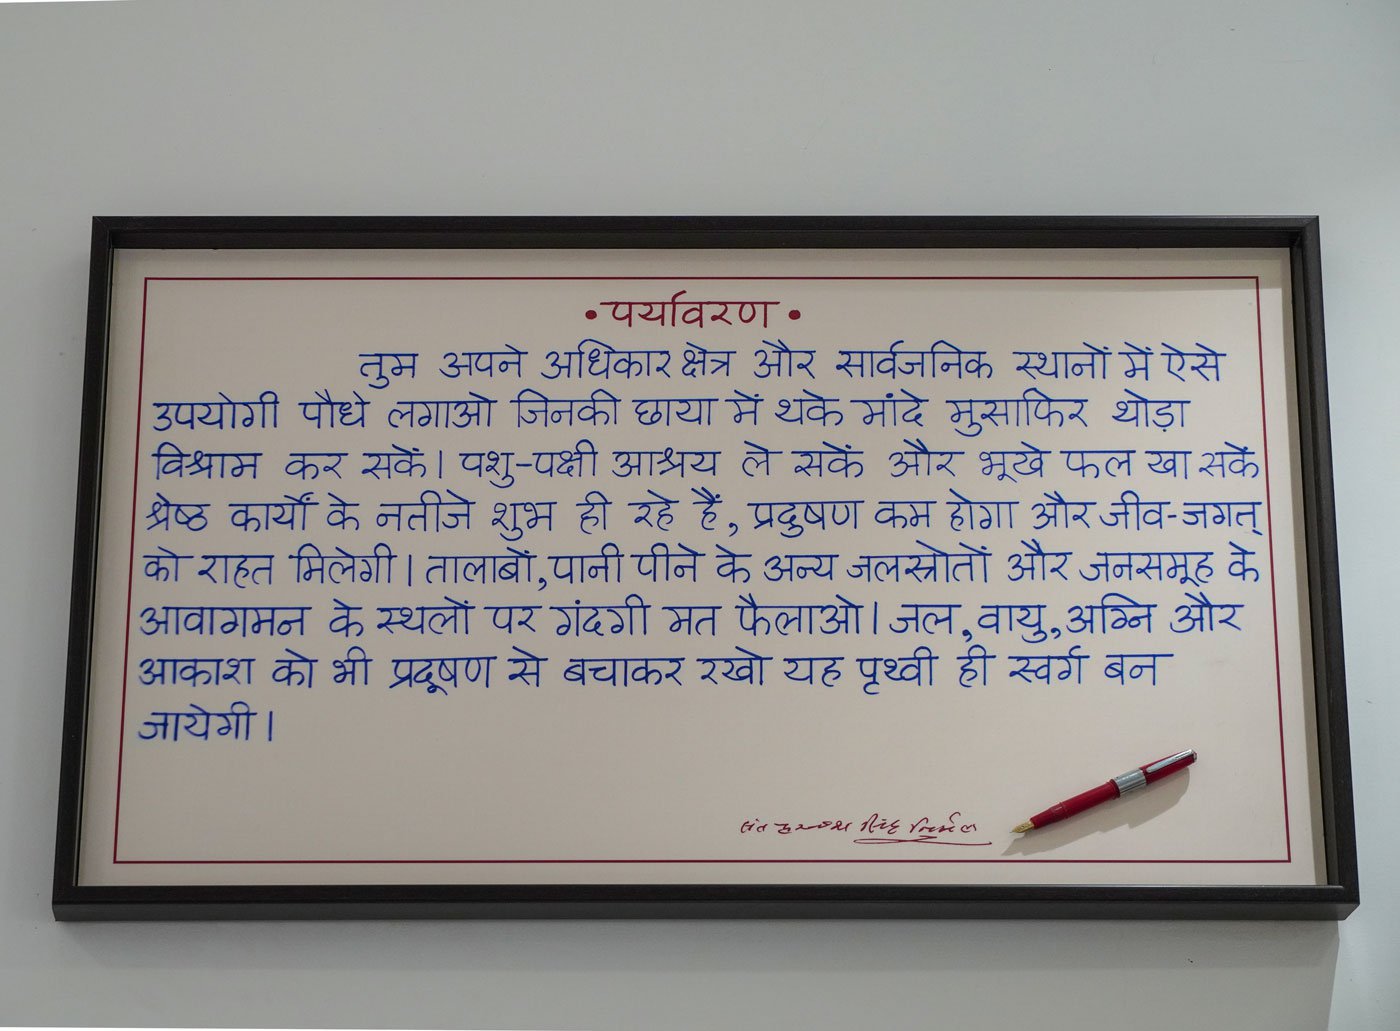 • पर्यावरण •
तुम अपने अधिकार क्षेत्र और सार्वजनिक स्थानों में ऐसे
उपयोगी पौधे लगाओ जिनकी छाया में थके मांदे मुसाफिर थोड़ा
विश्राम कर सकें। पशु-पक्षी आश्रय ले सकें और भूखे फल खा सकें
श्रेष्ठ कार्यों के नतीजे शुभ ही रहे हैं, प्रदुषण कम होगा और जीव-जगत्
को राहत मिलेगी। तालाबों, पानी पीने के अन्य जलस्त्रोतों और जनसमूह के
आवागमन के स्थलों पर गंदगी मत फैलाओ। जल, वायु, अग्नि और
आकाश को भी प्रदूषण से बचाकर रखो यह पृथ्वी ही स्वर्ग बन
जायेगी।
संत सिंह निर्मल